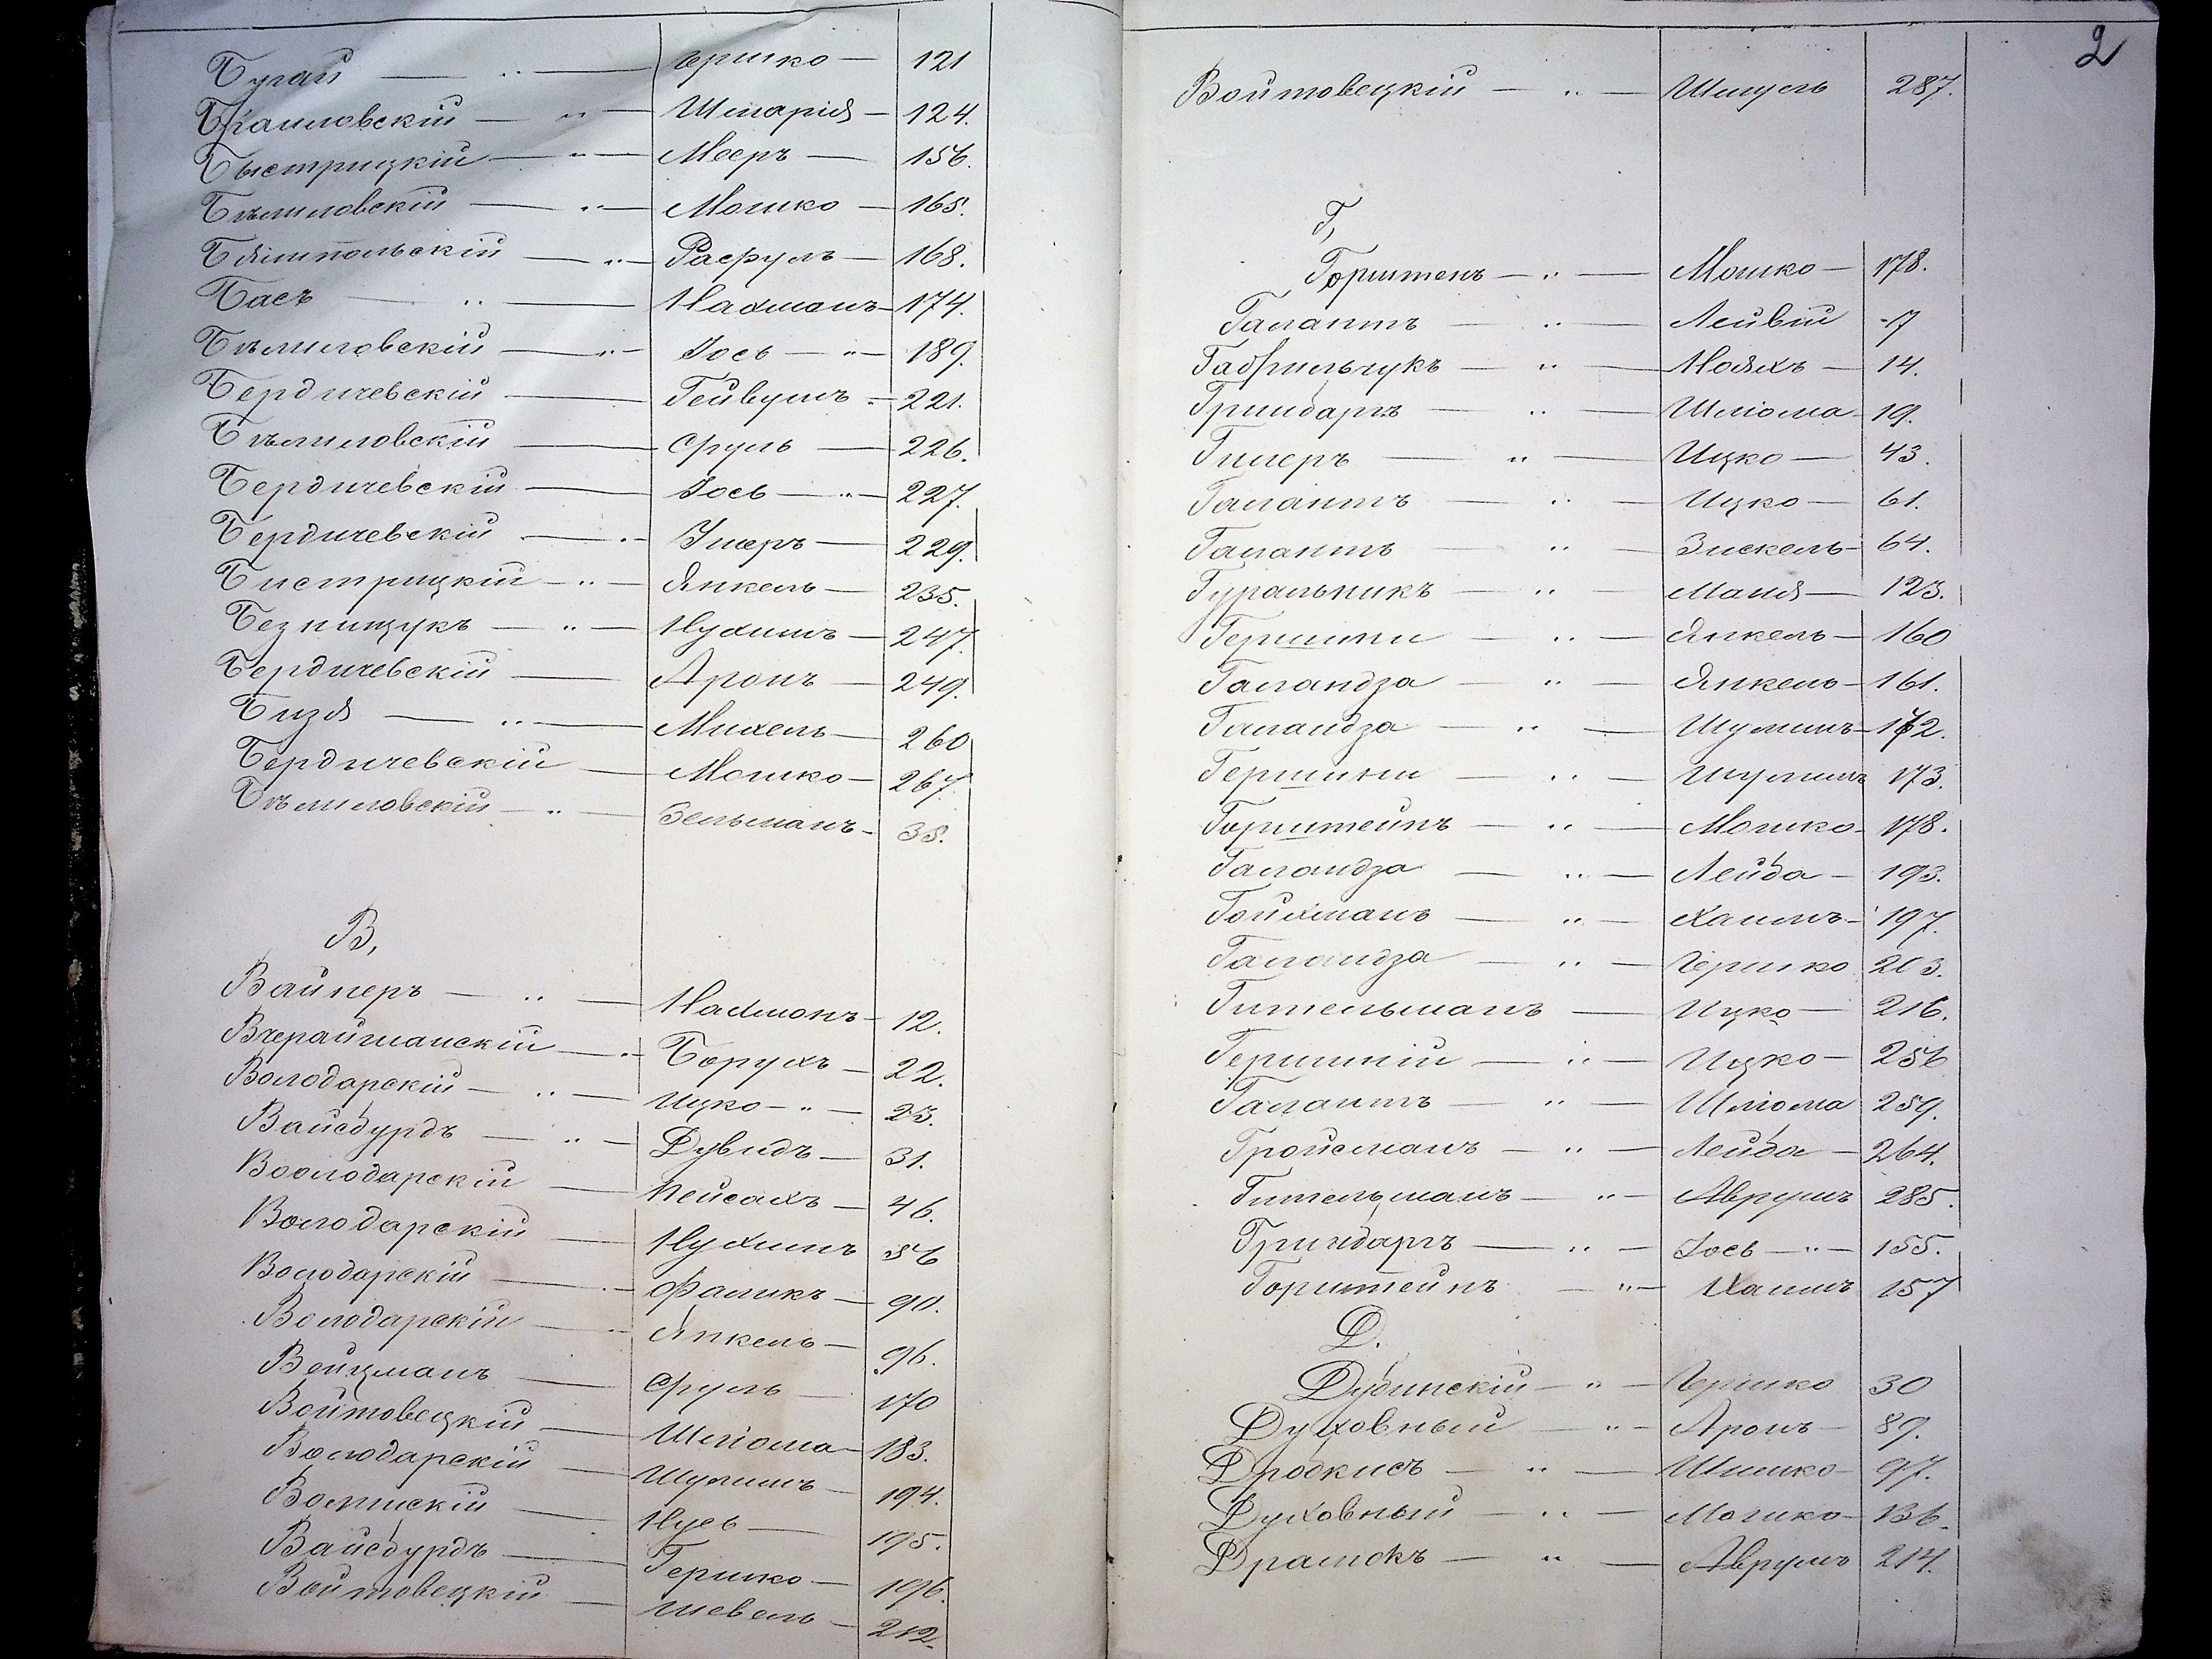 Бугай — „ — Гершко — 121
Браиловскій — „ — Шмарія — 124.
Быстрицкій — „ — Мееръ — 156.
Бѣлиловскій — „ — Мошко — 165.
Бялипольскій — „ — Расрулъ — 168.
Басъ — „ — Нахманъ — 174.
Бѣлиловскій — „ — Іось — „ — 189.
Бердичевскій — Лейвушъ — 221.
Бѣлиловскій — Сруль — 226.
Бердичевскій — Іось — „ — 227.
Бердичевскій — Ушеръ — 229.
Бистрицкій — „ — Янкель — 235.
Безпищукъ — „ — Нухимъ — 247.
Бердичевскій — Аронъ — 249.
Бизя — „ — Михель — 260
Бердичевскій — Мошко — 267.
Бѣлиловскій — „ — Зельманъ — 38.
В,
Вайнеръ — „ — Нахманъ — 12.
Вчерайшанскій — „ — Борухъ — 22.
Володарскій — „ — Ицко — „ — 23.
Вайсбурдъ — „ — Дувидъ — 31.
Воолодарскій — Пейсахъ — 46.
Володарскій — Нухимъ 56
Володарскій — Фаликъ — 90.
Володарскій — Янкель — 96.
Вейцманъ — Сруль — 170
Войтовецкій — Шліома — 183.
Володарскій — Шулимъ — 194.
Волинскій — Нусь — 195.
Вайсбурдъ — Гершко — 196.
Войтовецкій — Шевель — 212.
2
Войтовецкій — „ — Шмуль 287.
Г,
Горштенъ — „ — Мошко — 178.
Галантъ — „ — Лейвій 17
Габрильчукъ — „ — Мойхъ — 14.
Гринбаргъ — „ — Шліома — 19.
Гилеръ — „ — Ицко — 43.
Галантъ — „ — Ицко — 61.
Галантъ — „ — Зискель — 64.
Гуральникъ — „ — Маня — 123.
Гершини — „ — Янкель — 160
Галандза — „ — Янкель — 161.
Галандза — „ — Шулимъ — 172.
Гершини — „ — Шулимъ 173.
Горштейнъ — „ — Мошко — 178.
Галандза — „ — Лейба — 193.
Гойхманъ — „ — Хаимъ — 197.
Галандза — „ — Гершко 203.
Гительманъ — Ицко — 216.
Гершній — „ — Ицко — 256
Галантъ — „ — Шліома 259.
Гройсманъ — „ — Лейба — 264.
Гительманъ — „ — Аврумъ 285.
Гринбаргъ — „ — Іось — „ — 155.
Горштейнъ — „ — Хаимъ 157
Д.
Дубинскій — „ — Гершко 30
Духовный — „ — Аронъ — 89.
Дродкисъ — „ — Шимко — 97.
Духовный — „ — Мошко — 136.
Драликъ — „ — Аврумъ 214.